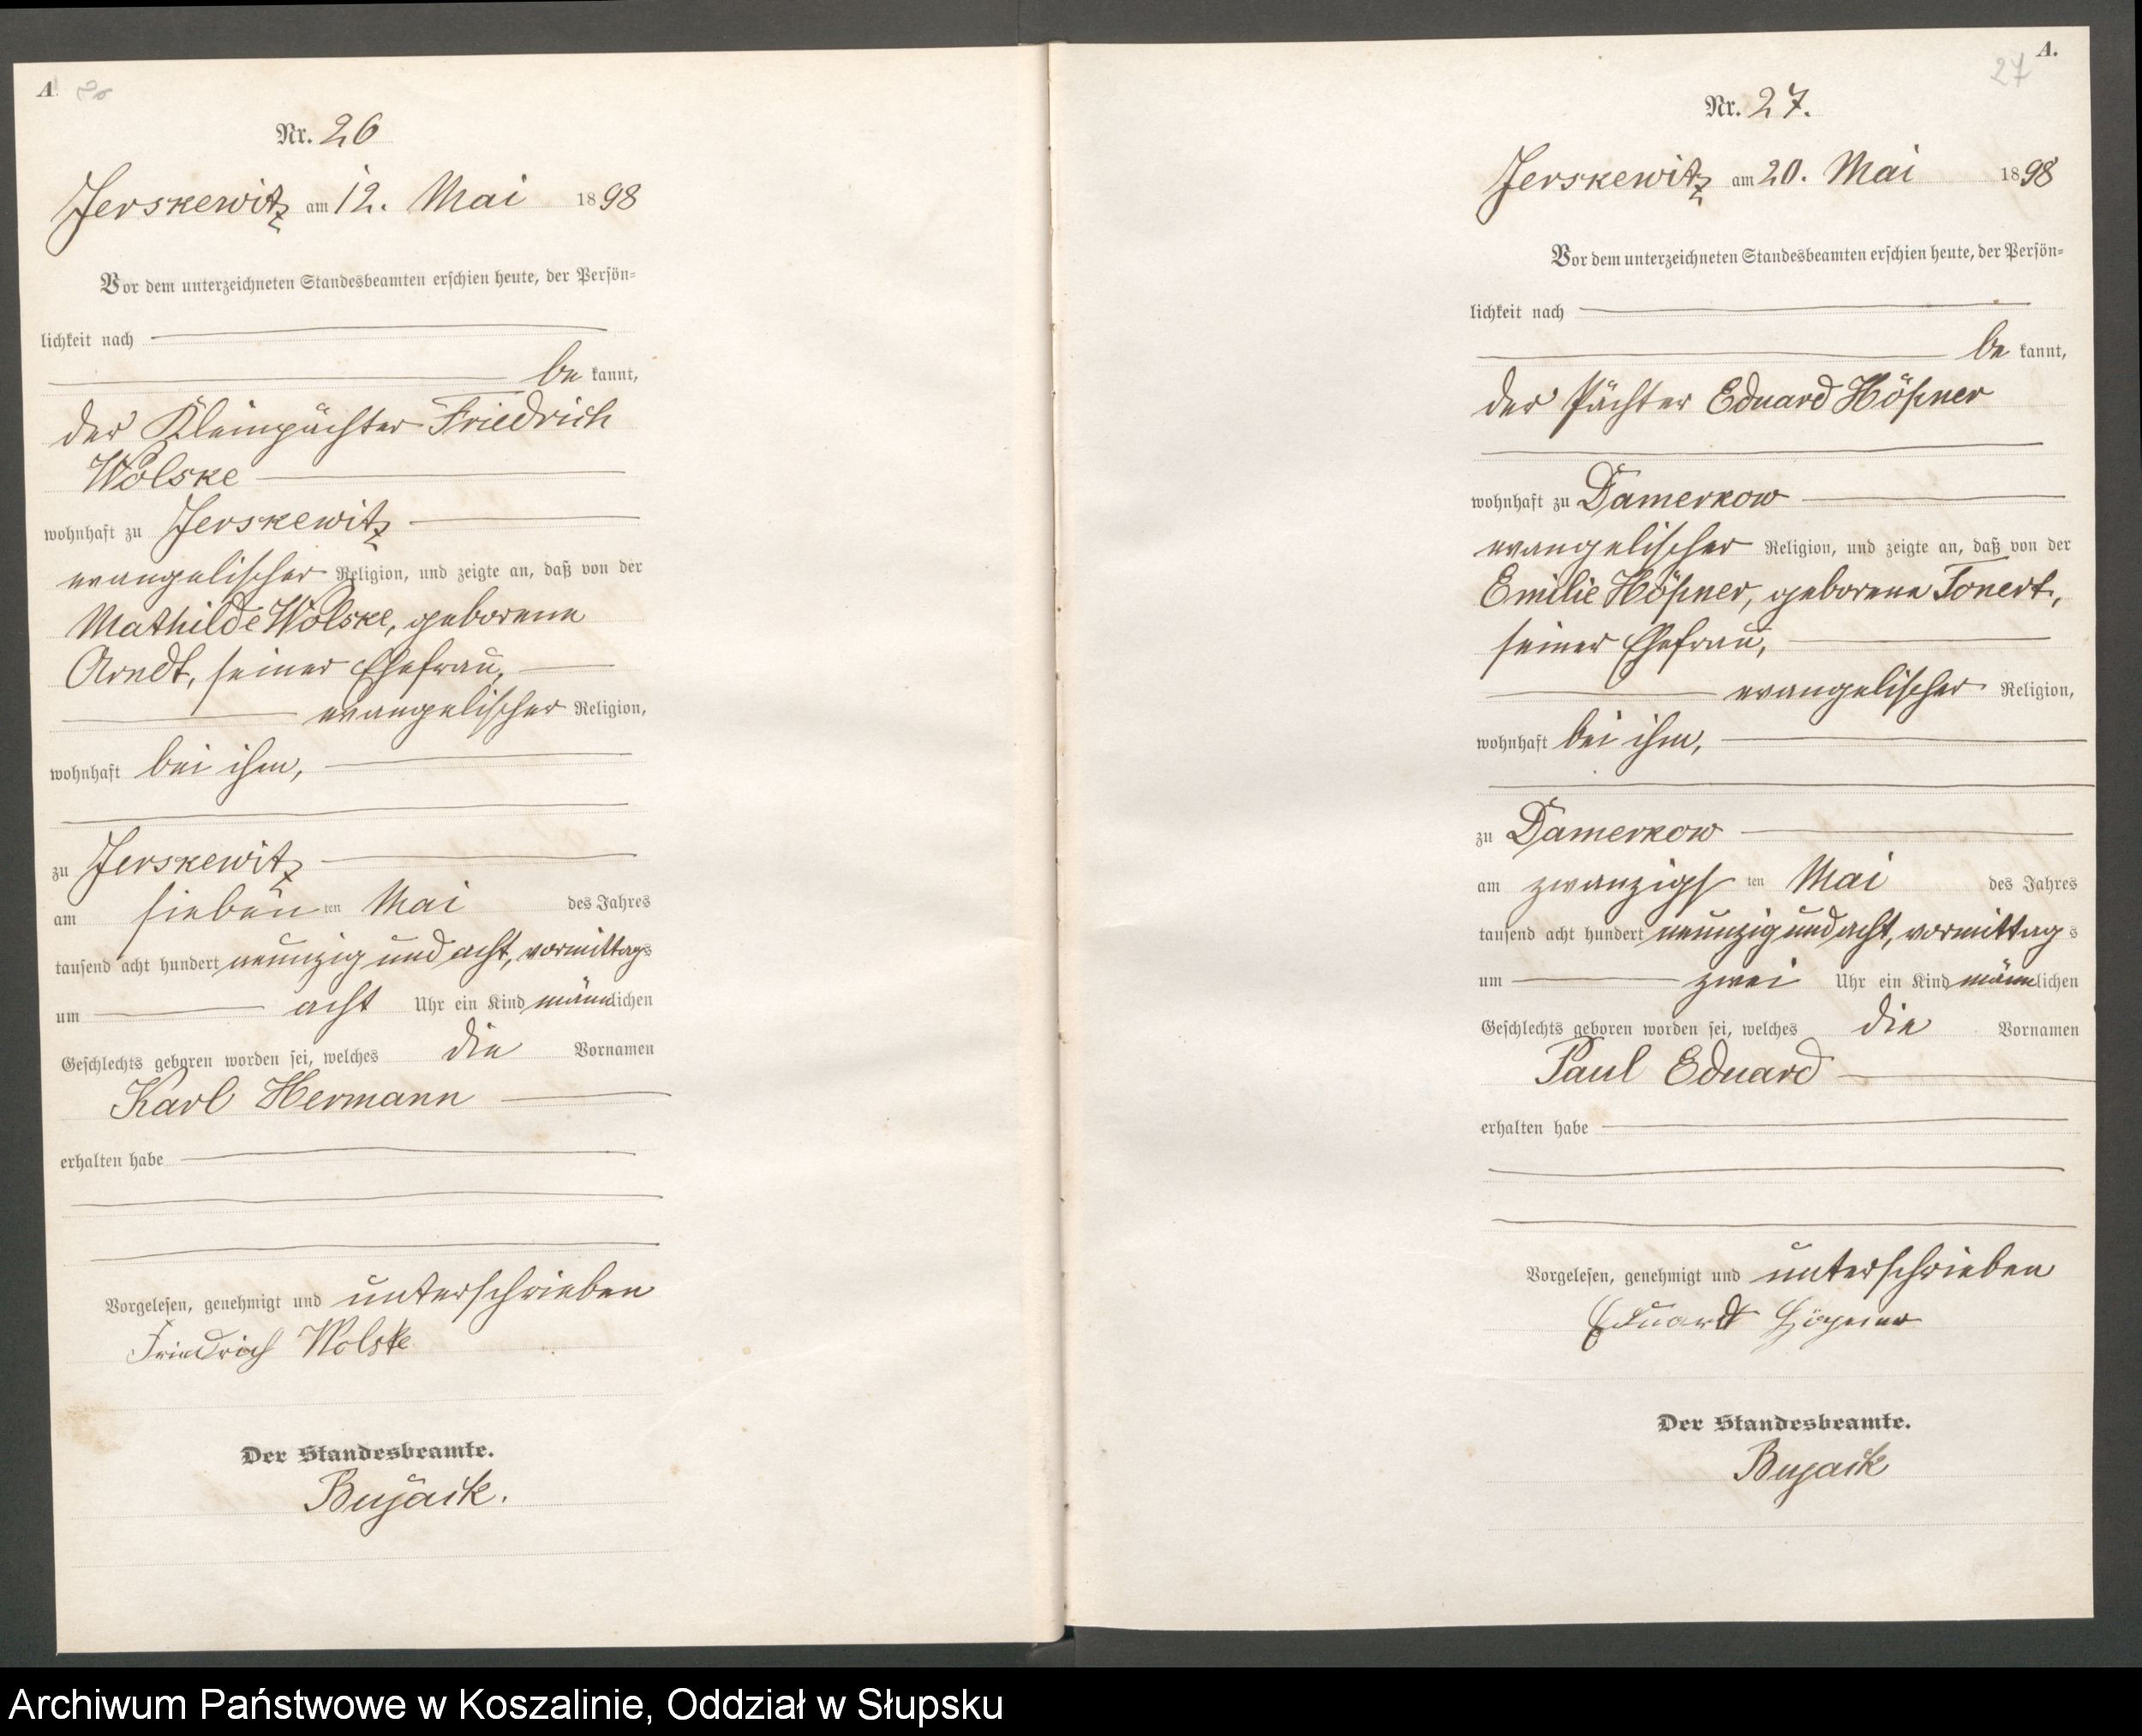 A.
Nr. 26
Jerskewitz am 12. Mai 1898
Vor dem unterzeichneten Standesbeamten erschien heute, der Persön=
lichkeit nach
be kannt,
der Kleinpächter Friedrich
Wolske
wohnhaft zu Jerskewitz
evangelischer Religion, und zeigte an, daß von der
Mathilde Wolske, geborene
Arndt, seiner Ehefrau,
evangelischer Religion,
wohnhaft bei ihm,
zu Jerskewitz
am siebenten Mai des Jahres
tausend acht hundert neunzig und acht, vormittags
um acht Uhr ein Kind männlichen
Geschlechts geboren worden sei, welches die Vornamen
Karl Hermann
erhalten habe
Vorgelesen, genehmigt und unterschrieben
Friedrich Wolske
Der Standesbeamte.
Bujack.
A.
27
Nr. 27.
Jerskewitz am 20. Mai 1898
Vor dem unterzeichneten Standesbeamten erschien heute, der Persön=
lichkeit nach
be kannt,
der Pächter Eduard Höpner
wohnhaft zu Damerkow
evangelischer Religion, und zeigte an, daß von der
Emilie Höpner, geborene Tonert,
seiner Ehefrau,
evangelischer Religion,
wohnhaft bei ihm,
zu Damerkow
am zwanzigsten Mai des Jahres
tausend acht hundert neunzig und acht, vormittags
um zwei Uhr ein Kind männlichen
Geschlechts geboren worden sei, welches die Vornamen
Paul Eduard
erhalten habe
Vorgelesen, genehmigt und unterschrieben
Eduardt Höpner
Der Standesbeamte.
Bujack
Archiwum Państwowe w Koszalinie, Oddział w Słupsku